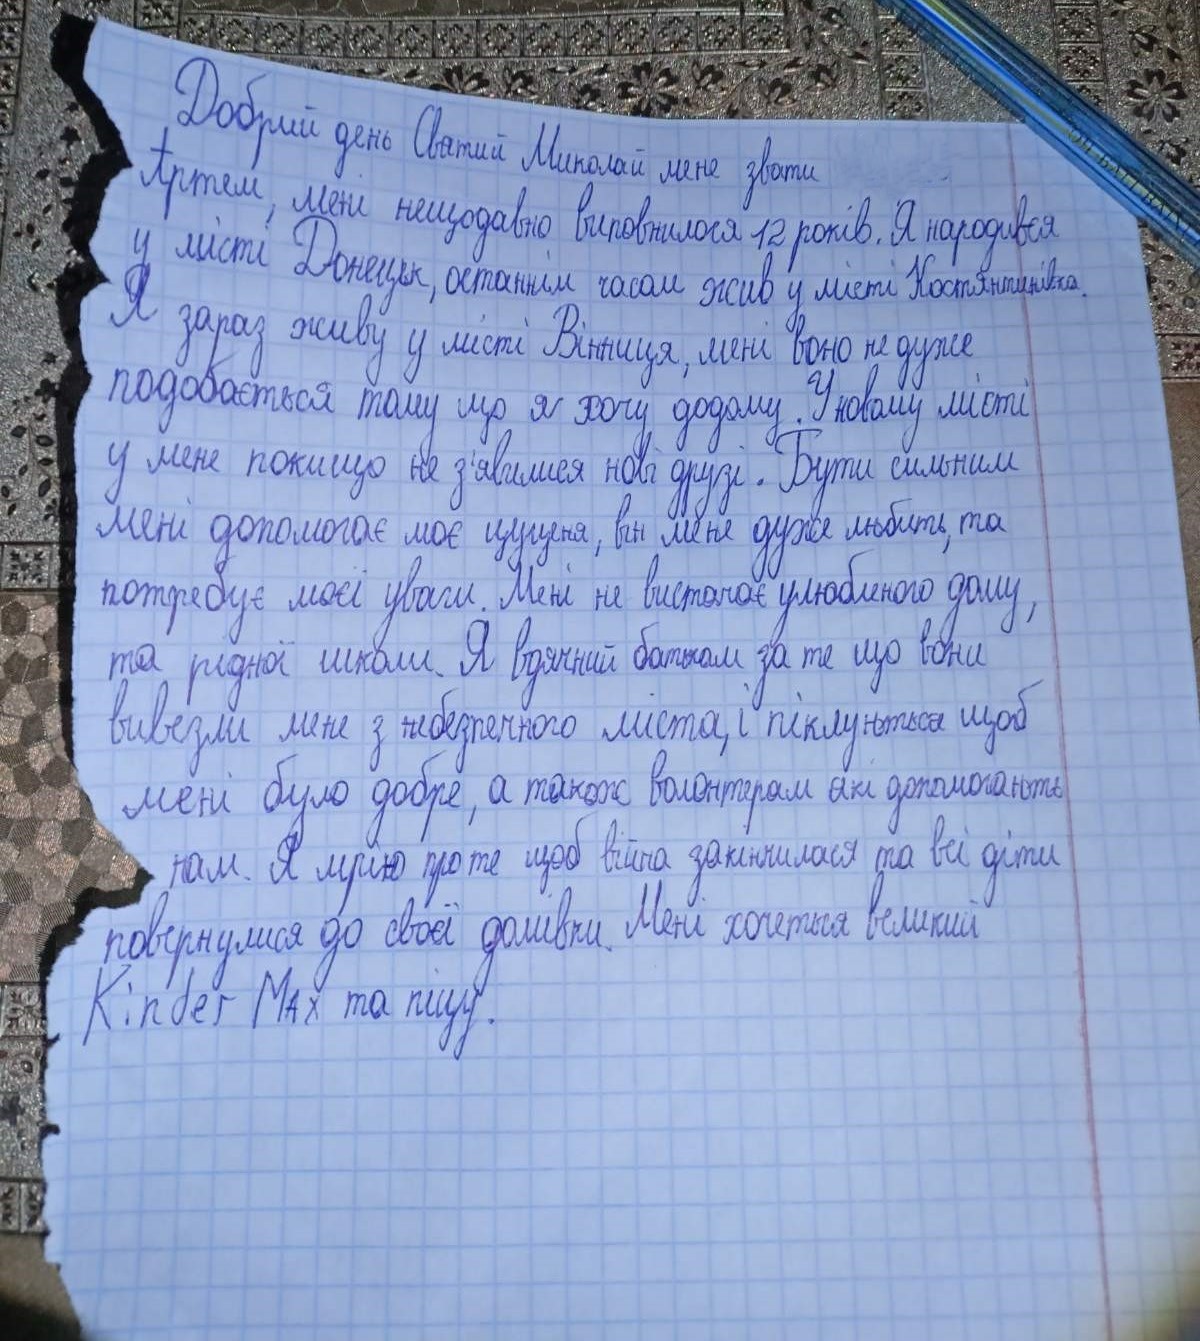 Добрий день Святий Миколай мене звати
Артем, мені нещодавно виповнилося 12 років. Я народився
у місті Донецьк, останнім часом жив у місті Костянтинівка.
Я зараз живу у місті Вінниця, мені воно не дуже
подобається тому що я хочу додому. У новому місті
у мене покищо не з'явилися нові друзі. Бути сильним
мені допомогає моє цуценя, він мене дуже любить, та
потребує моєї уваги. Мені не вистачає улюбленого дому,
та рідної школи. Я вдячний батькам за те що вони
вивезли мене з небезпечного міста, і піклуються щоб
мені було добре, а також волонтерам які допомогають
нам. Я мрію про те щоб війна закінчилася та всі діти
повернулися до своєї домівки. Мені хочеться великий
Kinder MAX та піцу.